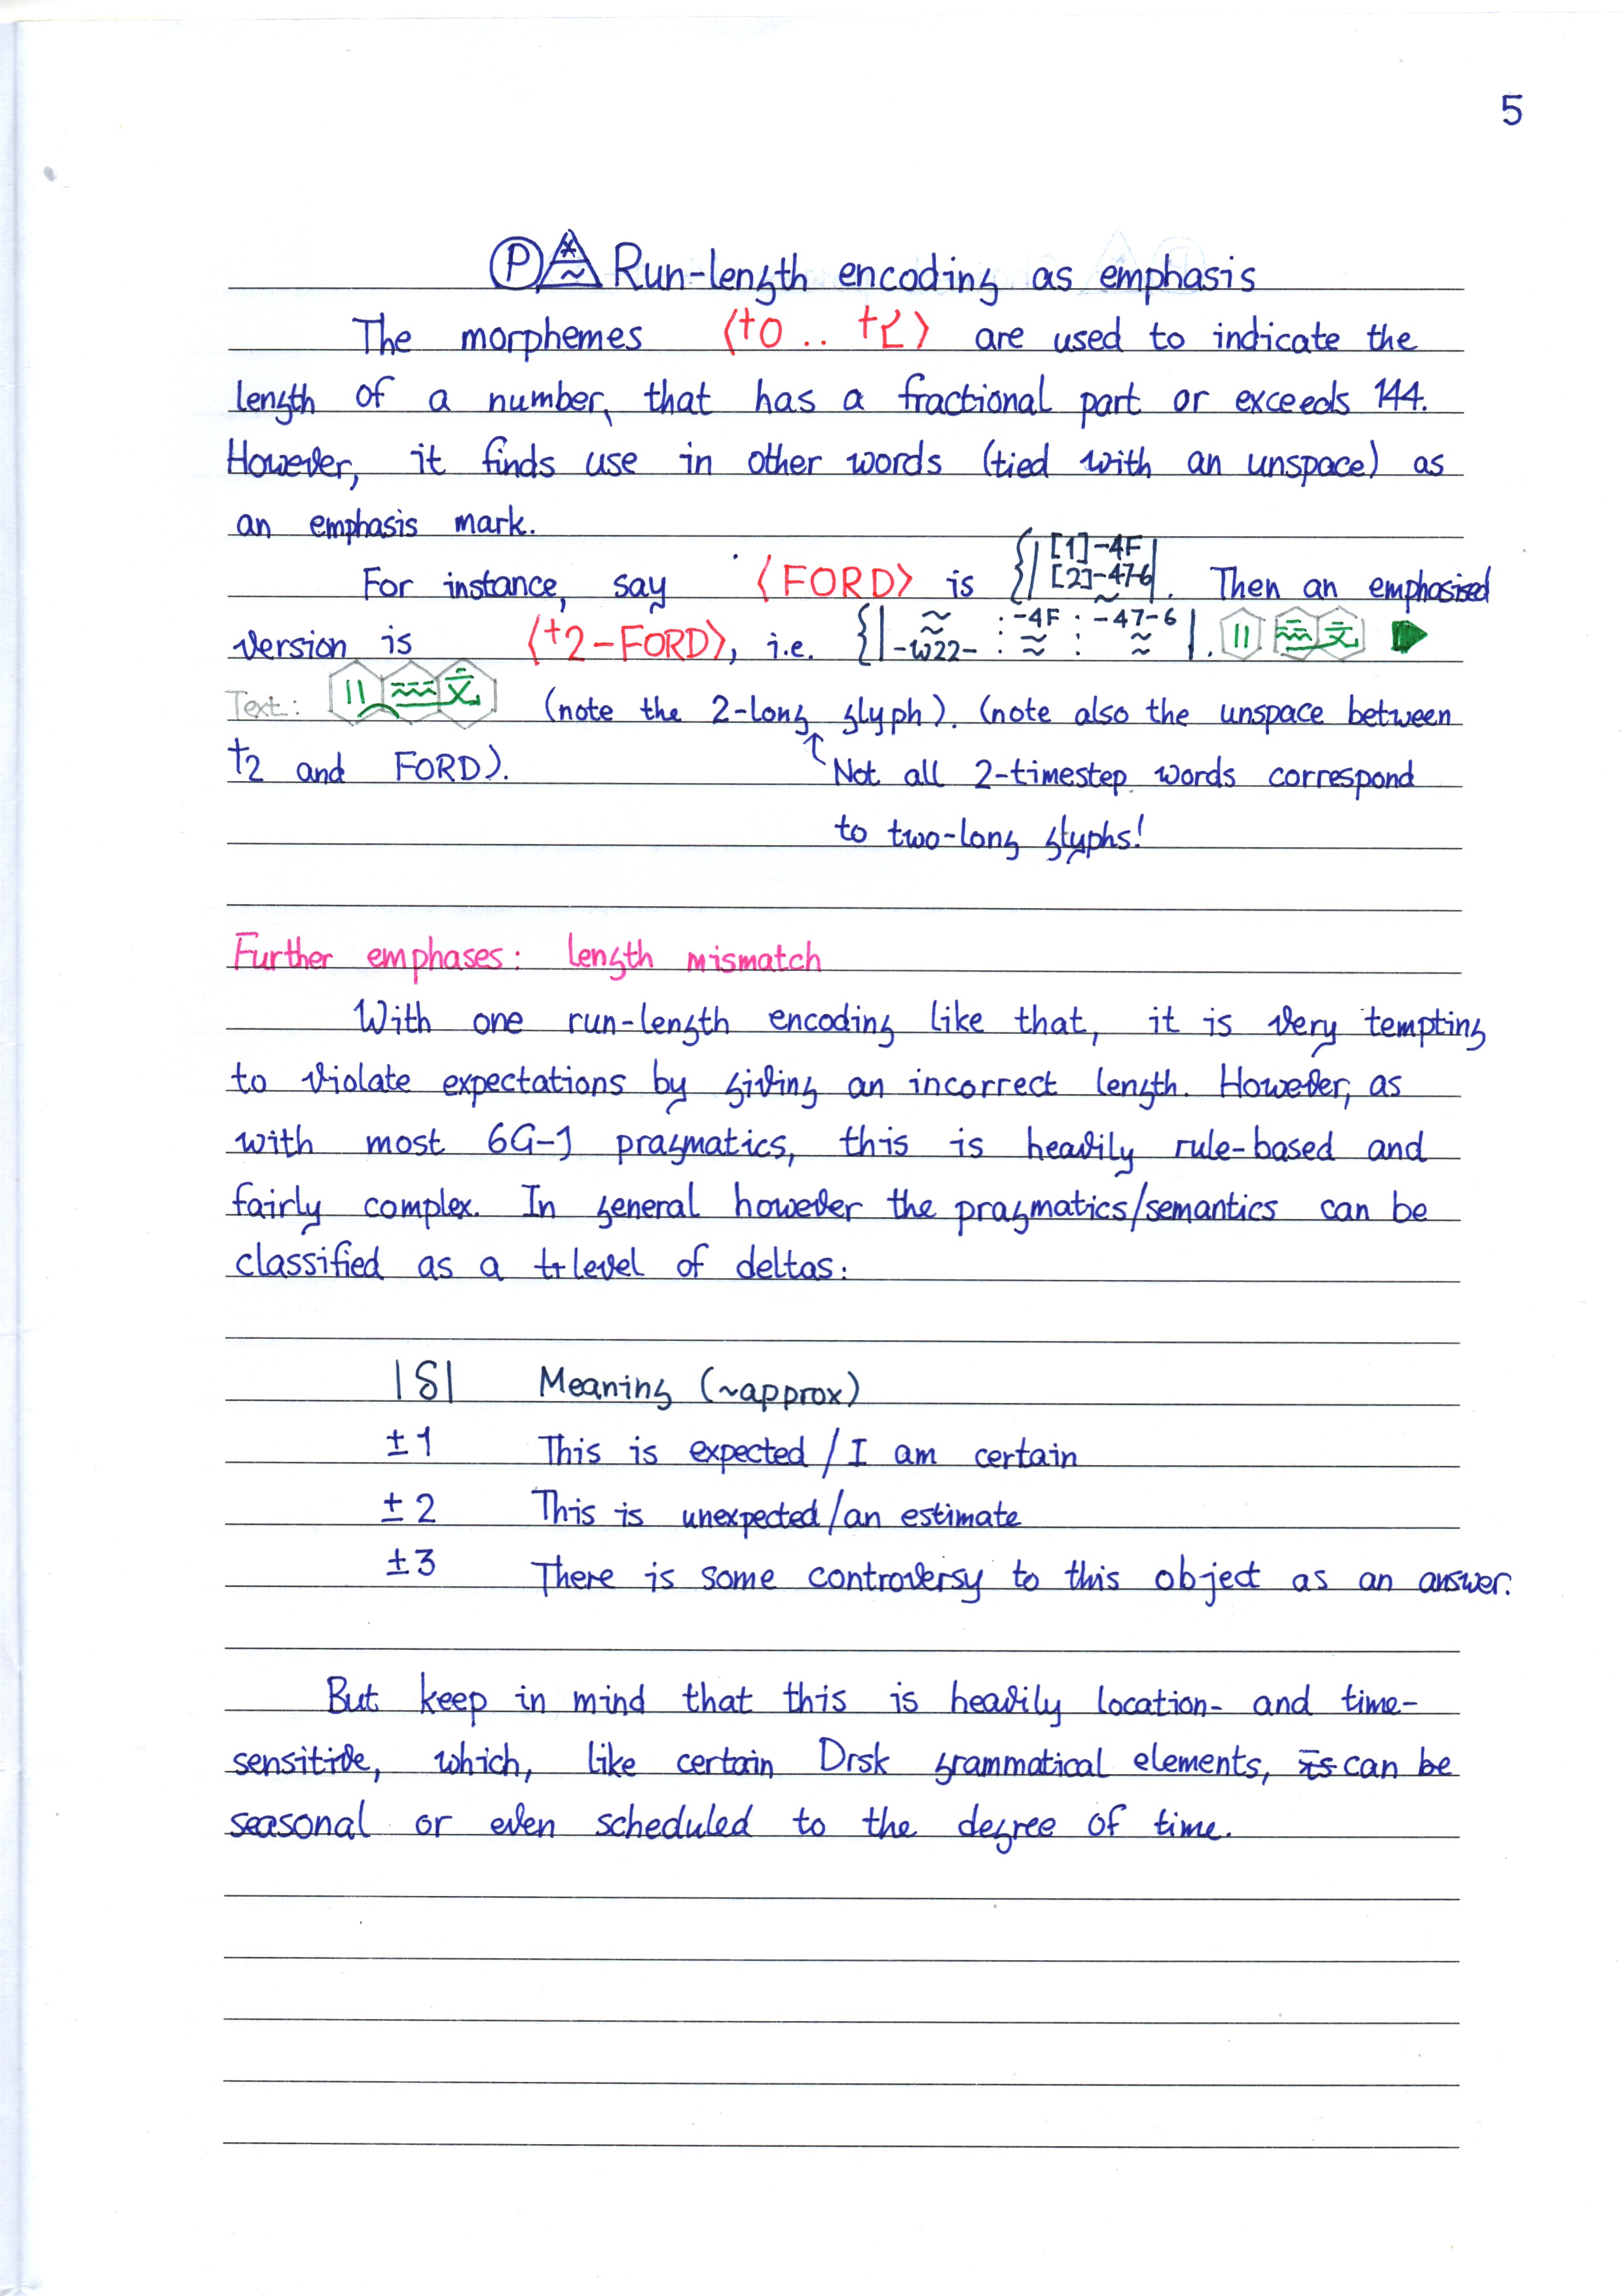 5
Ⓟ Run-length encoding as emphasis
The morphemes ⟨†0 .. †ᘔ⟩ are used to indicate the
length of a number, that has a fractional part or exceeds 144.
However, it finds use in other words (tied with an unspace) as
an emphasis mark.
For instance, say ⟨FORD⟩ is {| [1]-4F [2]-47-6 |. Then an emphasised
version is ⟨†2-FORD⟩, i.e. {| -W22- : -4F : -47-6 |.
Text: (note the 2-long glyph). (note also the unspace between
†2 and FORD).
↑ Not all 2-timestep words correspond
to two-long glyphs!
Further emphases: length mismatch
With one run-length encoding like that, it is very tempting
to violate expectations by giving an incorrect length. However, as
with most 6G-1 pragmatics, this is heavily rule-based and
fairly complex. In general however the pragmatics/semantics can be
classified as a level of deltas:
|δ| Meaning (~approx)
±1 This is expected / I am certain
±2 This is unexpected/an estimate
±3 There is some controversy to this object as an answer.
But keep in mind that this is heavily location- and time-
sensitive, which, like certain Drsk grammatical elements, can be
seasonal or even scheduled to the degree of time.